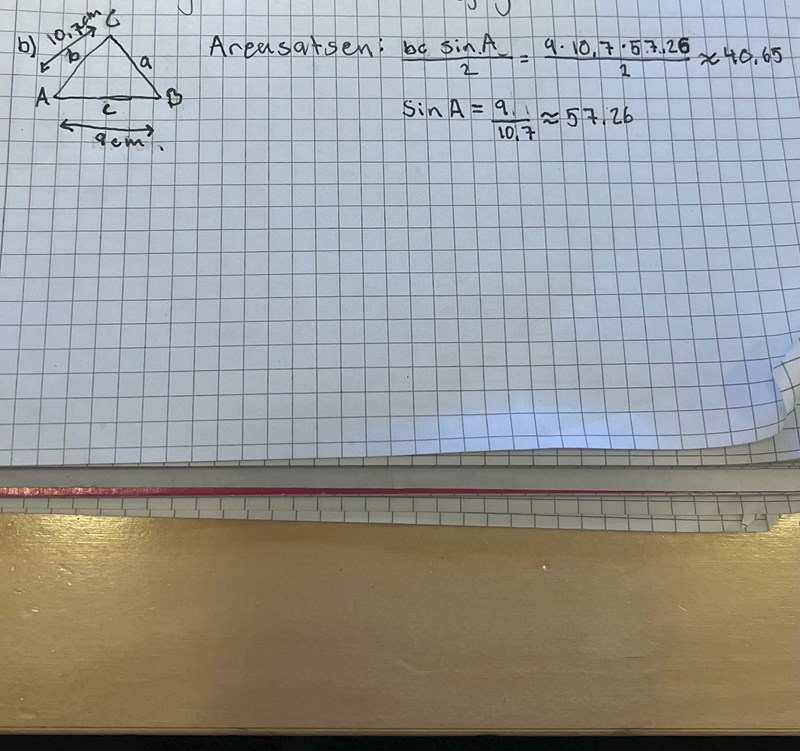 b) 10,7cm C
b a
A c B
9cm
Areasatsen: bc sin A / 2 = 9 · 10,7 · 57,26 / 2 ≈ 40,65
Sin A = 9 / 10,7 ≈ 57,26